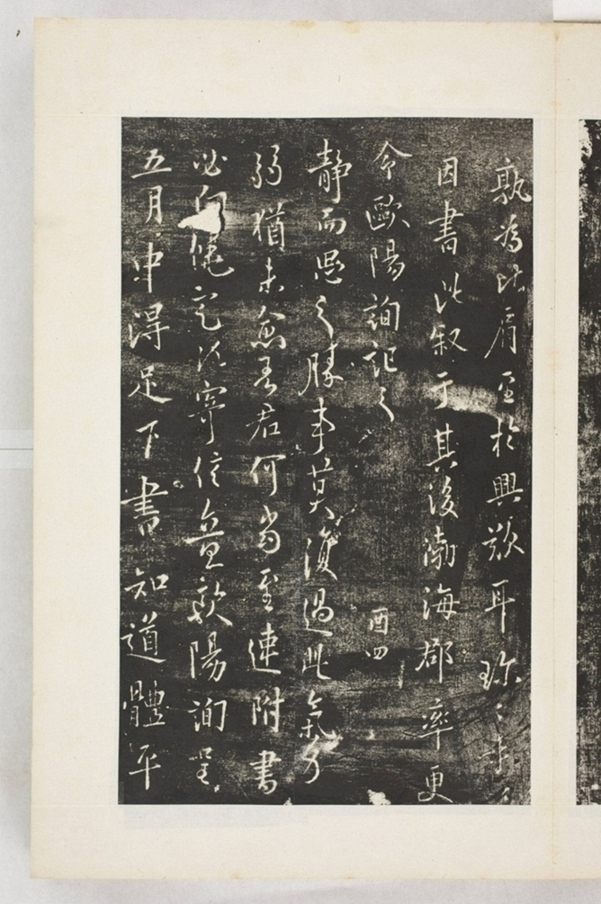 孰為比肩至於興歎耳珎
因書此叙于其後渤海郡率更
令歐陽詢記之
酉四
靜而思之勝事莫復過此氣力
弱猶未愈吾君何當至速附書
必向饒定寄信歐陽詢呈
五月中得足下書知道體平